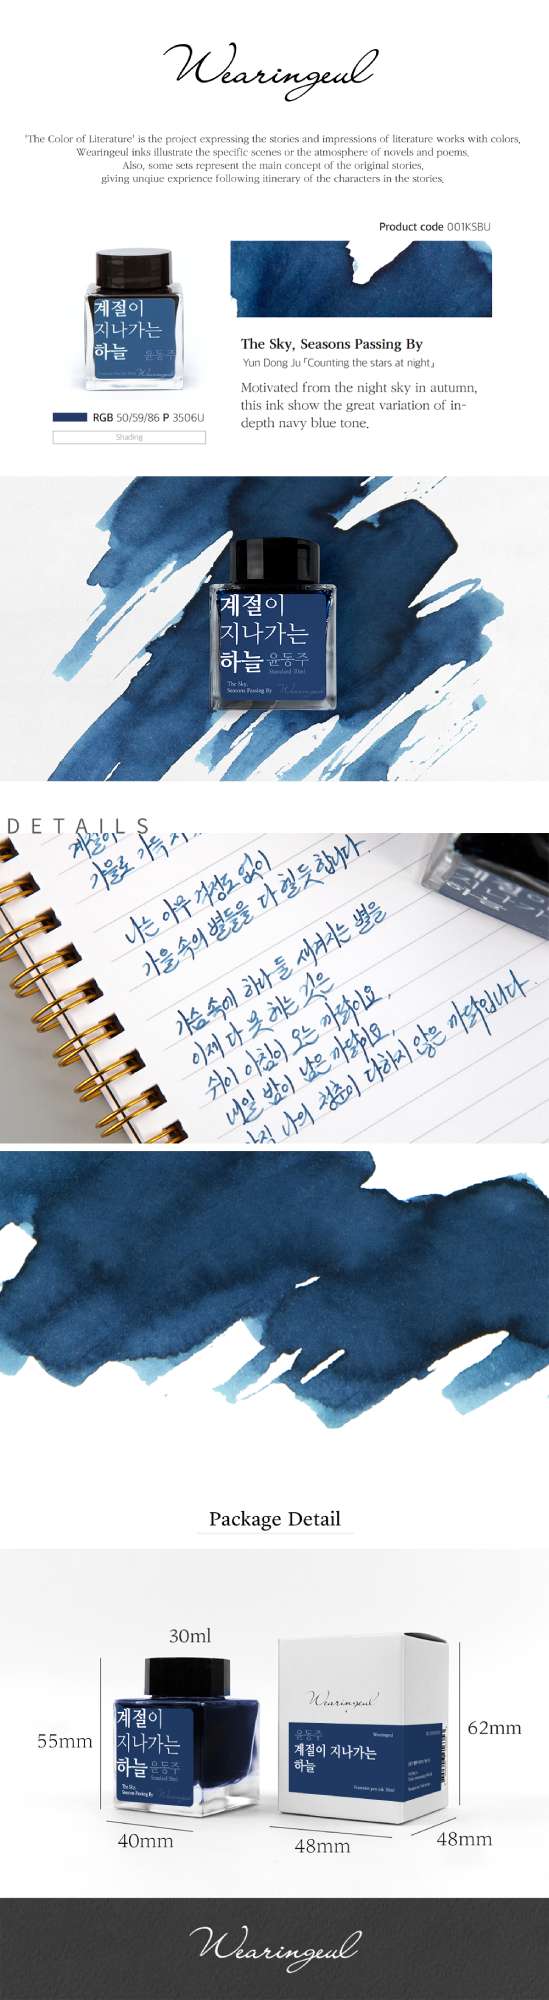 Wearingeul
'The Color of Literature' is the project expressing the stories and impressions of literature works with colors,
Wearingeul inks illustrate the specific scenes or the atmosphere of novels and poems.
Also, some sets represent the main concept of the original stories,
giving unqiue exprience following itinerary of the characters in the stories.
Product code 001KSBU
계절이
지나가는
하늘 윤동주
Wearingeul
RGB 50/59/86 P 3506U
Shading
The Sky, Seasons Passing By
Yun Dong Ju「Counting the stars at night」
Motivated from the night sky in autumn,
this ink show the great variation of in-
depth navy blue tone.
계절이
지나가는
하늘 윤동주
Standard 30ml
The Sky,
Seasons Passing By Wearingeul
DETAILS
계절이
가을로 가득
나는 아무 걱정도 없이
가을 속의 별들을 다 헬듯합니다.
가슴속에 하나 둘 새겨지는 별을
이제 다 못 헤는 것은
쉬이 아침이 오는 까닭이요,
내일 밤이 남은 까닭이요,
아직 나의 청춘이 다하지 않은 까닭입니다.
Package Detail
30ml
55mm
40mm
계절이
지나가는
하늘 윤동주
Standard 30ml
The Sky,
Seasons Passing By Wearingeul
Wearingeul
윤동주
Wearingeul
계절이 지나가는
하늘
Fountain pen ink 30ml
62mm
48mm
48mm
Wearingeul